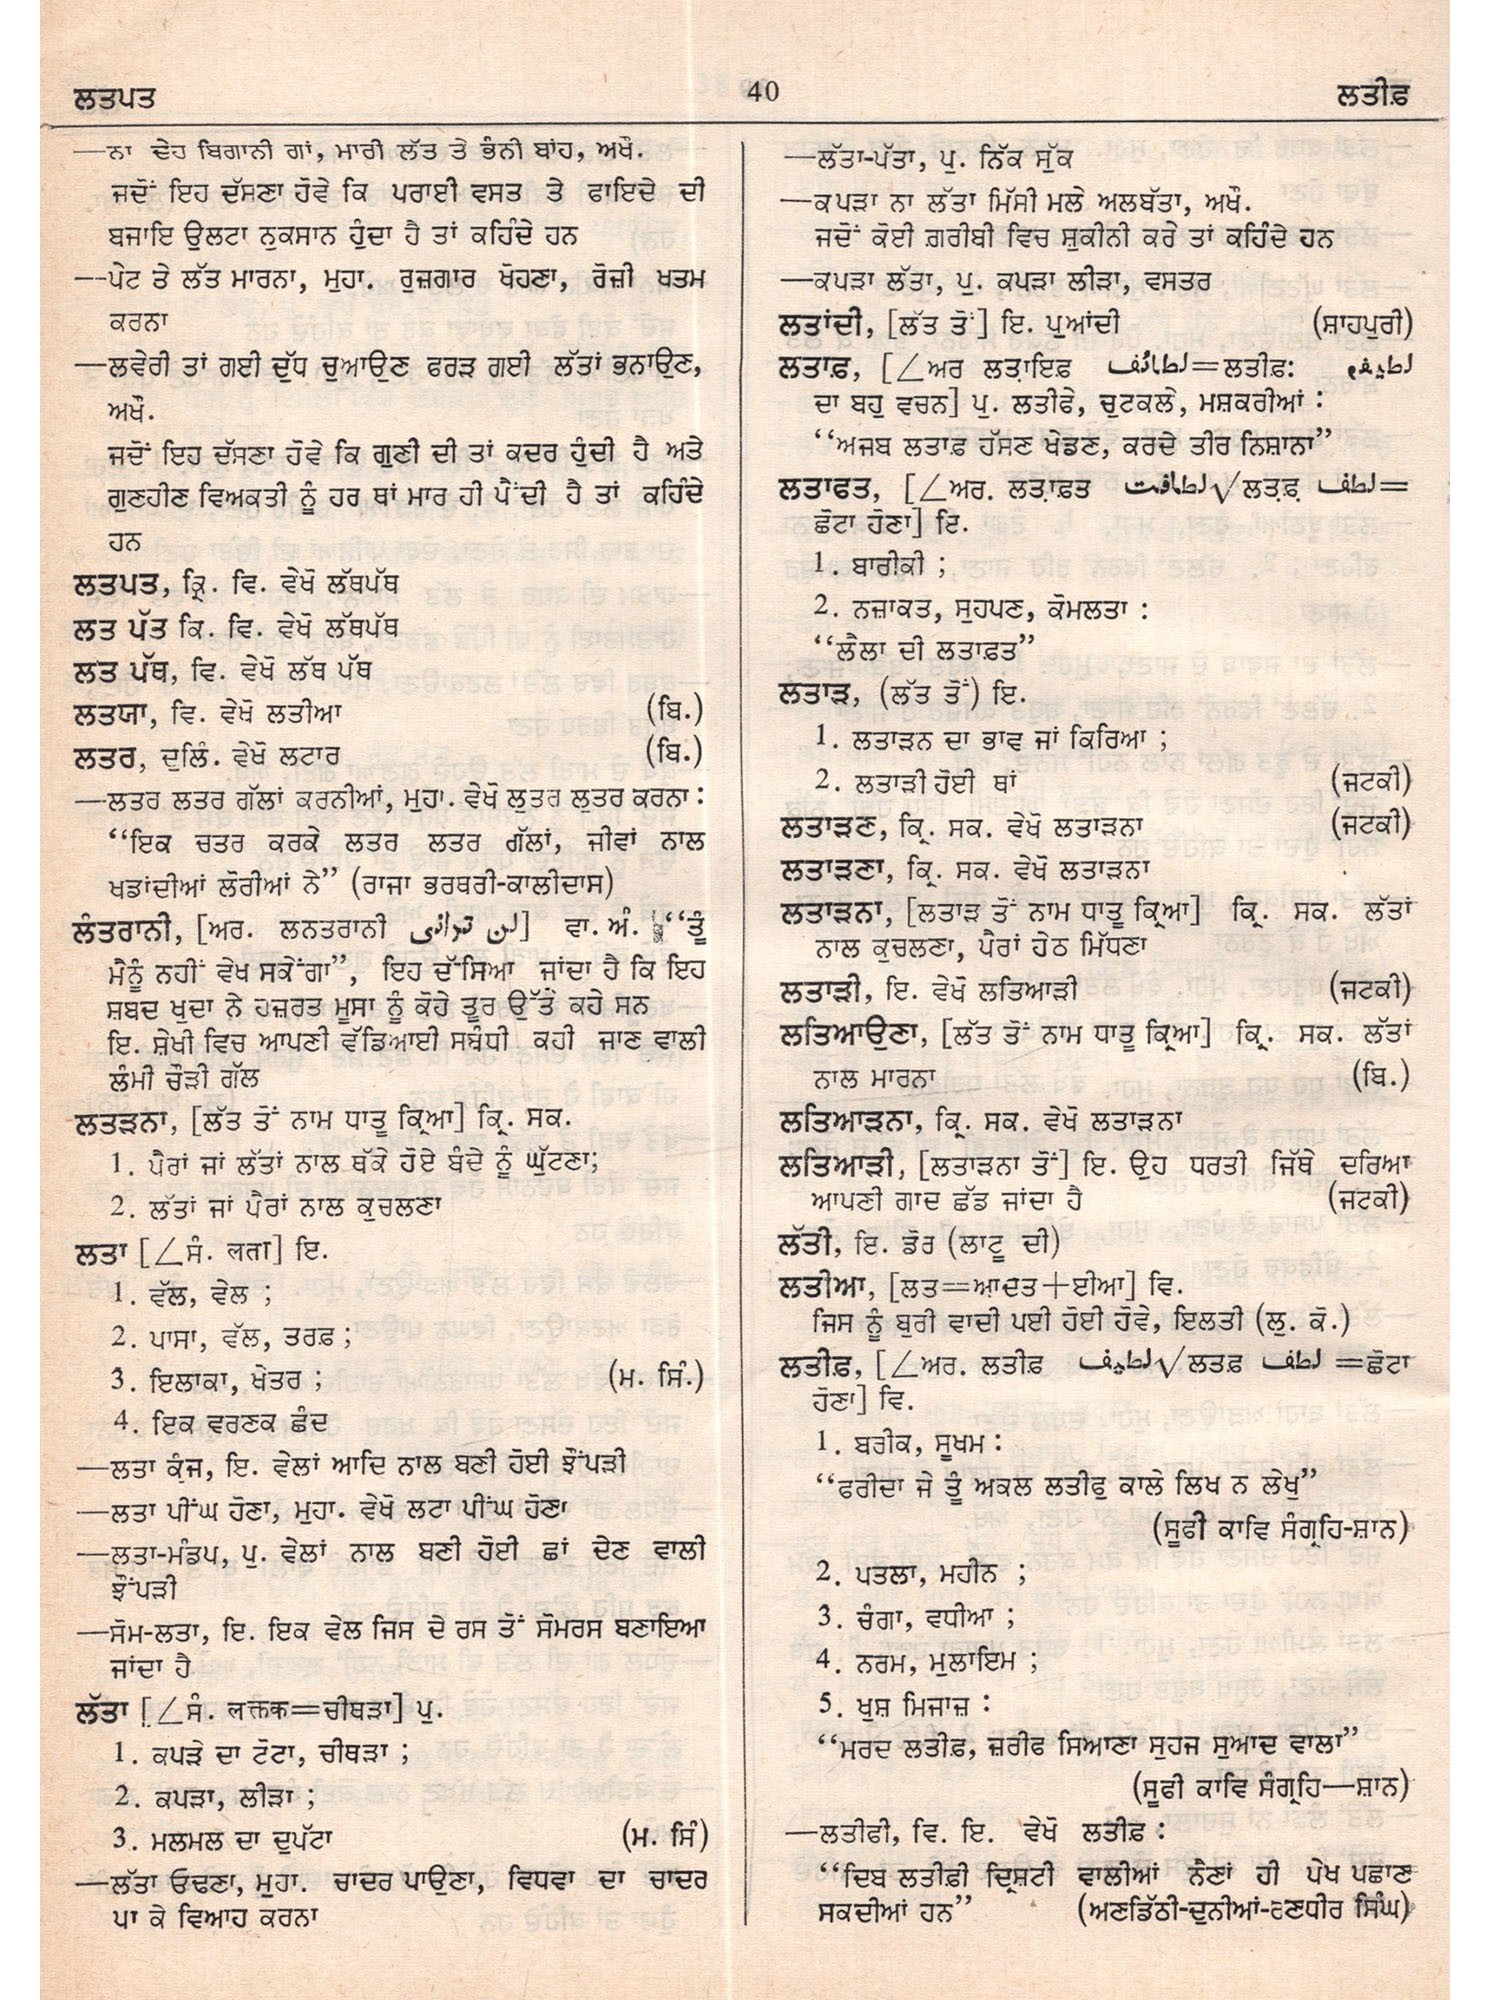 ਲਤਪਤ 40 ਲਤੀਫ਼
—ਨਾ ਦੇਹ ਬਿਗਾਨੀ ਗਾਂ, ਮਾਰੀ ਲੱਤ ਤੇ ਭੰਨੀ ਬਾਂਹ, ਅਖੌ.
ਜਦੋਂ ਇਹ ਦੱਸਣਾ ਹੋਵੇ ਕਿ ਪਰਾਈ ਵਸਤ ਤੇ ਫਾਇਦੇ ਦੀ
ਬਜਾਇ ਉਲਟਾ ਨੁਕਸਾਨ ਹੁੰਦਾ ਹੈ ਤਾਂ ਕਹਿੰਦੇ ਹਨ
—ਪੇਟ ਤੇ ਲੱਤ ਮਾਰਨਾ, ਮੁਹਾ. ਰੁਜ਼ਗਾਰ ਖੋਹਣਾ, ਰੋਜ਼ੀ ਖਤਮ
ਕਰਨਾ
—ਲਵੇਰੀ ਤਾਂ ਗਈ ਦੁੱਧ ਚੁਆਉਣ ਫਰੜ ਗਈ ਲੱਤਾਂ ਭਨਾਉਣ,
ਅਖੌ.
ਜਦੋਂ ਇਹ ਦੱਸਣਾ ਹੋਵੇ ਕਿ ਗੁਣੀ ਦੀ ਤਾਂ ਕਦਰ ਹੁੰਦੀ ਹੈ ਅਤੇ
ਗੁਣਹੀਣ ਵਿਅਕਤੀ ਨੂੰ ਹਰ ਥਾਂ ਮਾਰ ਹੀ ਪੈਂਦੀ ਹੈ ਤਾਂ ਕਹਿੰਦੇ
ਹਨ
ਲਤਪਤ, ਕ੍ਰਿ. ਵਿ. ਵੇਖੋ ਲੱਥਪੱਥ
ਲਤ ਪੱਤ ਕਿ. ਵਿ. ਵੇਖੋ ਲੱਥਪੱਥ
ਲਤ ਪੱਥ, ਵਿ. ਵੇਖੋ ਲੱਥ ਪੱਥ
ਲਤਯਾ, ਵਿ. ਵੇਖੋ ਲਤੀਆ (ਬਿ.)
ਲਤਰ, ਦੁਲਿੰ. ਵੇਖੋ ਲਟਾਰ (ਬਿ.)
—ਲਤਰ ਲਤਰ ਗੱਲਾਂ ਕਰਨੀਆਂ, ਮੁਹਾ. ਵੇਖੋ ਲੁਤਰ ਲੁਤਰ ਕਰਨਾ :
“ਇਕ ਚਤਰ ਕਰਕੇ ਲਤਰ ਲਤਰ ਗੱਲਾਂ, ਜੀਵਾਂ ਨਾਲ
ਖਡਾਂਦੀਆਂ ਲੋਰੀਆਂ ਨੇ” (ਰਾਜਾ ਭਰਥਰੀ-ਕਾਲੀਦਾਸ)
ਲੰਤਰਾਨੀ, [ਅਰ. ਲਨਤਰਾਨੀ لن ترانی] ਵਾ. ਅੰ. “ਤੂੰ
ਮੈਨੂੰ ਨਹੀਂ ਵੇਖ ਸਕੇਂਗਾ”, ਇਹ ਦੱਸਿਆ ਜਾਂਦਾ ਹੈ ਕਿ ਇਹ
ਸ਼ਬਦ ਖੁਦਾ ਨੇ ਹਜ਼ਰਤ ਮੂਸਾ ਨੂੰ ਕੋਹੇ ਤੂਰ ਉੱਤੇ ਕਹੇ ਸਨ
ਇ. ਸ਼ੇਖੀ ਵਿਚ ਆਪਣੀ ਵੱਡਿਆਈ ਸਬੰਧੀ ਕਹੀ ਜਾਣ ਵਾਲੀ
ਲੰਮੀ ਚੌੜੀ ਗੱਲ
ਲਤੜਨਾ, [ਲੱਤ ਤੋਂ ਨਾਮ ਧਾਤੂ ਕ੍ਰਿਆ] ਕ੍ਰਿ. ਸਕ.
1. ਪੈਰਾਂ ਜਾਂ ਲੱਤਾਂ ਨਾਲ ਥੱਕੇ ਹੋਏ ਬੰਦੇ ਨੂੰ ਘੁੱਟਣਾ;
2. ਲੱਤਾਂ ਜਾਂ ਪੈਰਾਂ ਨਾਲ ਕੁਚਲਣਾ
ਲਤਾ [∠ਸੰ. लता] ਇ.
1. ਵੱਲ, ਵੇਲ ;
2. ਪਾਸਾ, ਵੱਲ, ਤਰਫ਼ ;
3. ਇਲਾਕਾ, ਖੇਤਰ ; (ਮ. ਸਿੰ.)
4. ਇਕ ਵਰਣਕ ਛੰਦ
—ਲਤਾ ਕੁੰਜ, ਇ. ਵੇਲਾਂ ਆਦਿ ਨਾਲ ਬਣੀ ਹੋਈ ਝੌਂਪੜੀ
—ਲਤਾ ਪੀਂਘ ਹੋਣਾ, ਮੁਹਾ. ਵੇਖੋ ਲਟਾ ਪੀਂਘ ਹੋਣਾ
—ਲਤਾ-ਮੰਡਪ, ਪੁ. ਵੇਲਾਂ ਨਾਲ ਬਣੀ ਹੋਈ ਛਾਂ ਦੇਣ ਵਾਲੀ
ਝੌਂਪੜੀ
—ਸੋਮ-ਲਤਾ, ਇ. ਇਕ ਵੇਲ ਜਿਸ ਦੇ ਰਸ ਤੋਂ ਸੋਮਰਸ ਬਣਾਇਆ
ਜਾਂਦਾ ਹੈ
ਲੱਤਾ [∠ਸੰ. लक्तक=ਚੀਥੜਾ] ਪੁ.
1. ਕਪੜੇ ਦਾ ਟੋਟਾ, ਚੀਥੜਾ ;
2. ਕਪੜਾ, ਲੀੜਾ ;
3. ਮਲਮਲ ਦਾ ਦੁਪੱਟਾ (ਮ. ਸਿੰ)
—ਲੱਤਾ ਓਢਣਾ, ਮੁਹਾ. ਚਾਦਰ ਪਾਉਣਾ, ਵਿਧਵਾ ਦਾ ਚਾਦਰ
ਪਾ ਕੇ ਵਿਆਹ ਕਰਨਾ
—ਲੱਤਾ-ਪੱਤਾ, ਪੁ. ਨਿੱਕ ਸੁੱਕ
—ਕਪੜਾ ਨਾ ਲੱਤਾ ਮਿੱਸੀ ਮਲੇ ਅਲਬੱਤਾ, ਅਖੌ.
ਜਦੋਂ ਕੋਈ ਗ਼ਰੀਬੀ ਵਿਚ ਸ਼ੁਕੀਨੀ ਕਰੇ ਤਾਂ ਕਹਿੰਦੇ ਹਨ
—ਕਪੜਾ ਲੱਤਾ, ਪੁ. ਕਪੜਾ ਲੀੜਾ, ਵਸਤਰ
ਲਤਾਂਦੀ, [ਲੱਤ ਤੋਂ] ਇ. ਪੁਆਂਦੀ (ਸ਼ਾਹਪੁਰੀ)
ਲਤਾਫ਼, [∠ਅਰ ਲਤ਼ਾਇਫ਼ لطائف=ਲਤੀਫ਼:
ਦਾ ਬਹੁ ਵਚਨ] ਪੁ. ਲਤੀਫੇ, ਚੁਟਕਲੇ, ਮਸ਼ਕਰੀਆਂ :
“ਅਜਬ ਲਤਾਫ਼ ਹੱਸਣ ਖੇਡਣ, ਕਰਦੇ ਤੀਰ ਨਿਸ਼ਾਨਾ”
ਲਤਾਫਤ, [∠ਅਰ. ਲਤ਼ਾਫ਼ਤ لطافت√ਲਤ਼ਫ਼ لطف=
ਛੋਟਾ ਹੋਣਾ] ਇ.
1. ਬਾਰੀਕੀ ;
2. ਨਜ਼ਾਕਤ, ਸੁਹਪਣ, ਕੋਮਲਤਾ :
“ਲੈਲਾ ਦੀ ਲਤਾਫ਼ਤ”
ਲਤਾੜ, (ਲੱਤ ਤੋਂ) ਇ.
1. ਲਤਾੜਨ ਦਾ ਭਾਵ ਜਾਂ ਕਿਰਿਆ ;
2. ਲਤਾੜੀ ਹੋਈ ਥਾਂ (ਜਟਕੀ)
ਲਤਾੜਣ, ਕ੍ਰਿ. ਸਕ. ਵੇਖੋ ਲਤਾੜਨਾ (ਜਟਕੀ)
ਲਤਾੜਣਾ, ਕ੍ਰਿ. ਸਕ. ਵੇਖੋ ਲਤਾੜਨਾ
ਲਤਾੜਨਾ, [ਲਤਾੜ ਤੋਂ ਨਾਮ ਧਾਤੂ ਕ੍ਰਿਆ] ਕ੍ਰਿ. ਸਕ. ਲੱਤਾਂ
ਨਾਲ ਕੁਚਲਣਾ, ਪੈਰਾਂ ਹੇਠ ਮਿੱਧਣਾ
ਲਤਾੜੀ, ਇ. ਵੇਖੋ ਲਤਿਆੜੀ (ਜਟਕੀ)
ਲਤਿਆਉਣਾ, [ਲੱਤ ਤੋਂ ਨਾਮ ਧਾਤੂ ਕ੍ਰਿਆ] ਕ੍ਰਿ. ਸਕ. ਲੱਤਾਂ
ਨਾਲ ਮਾਰਨਾ (ਬਿ.)
ਲਤਿਆੜਨਾ, ਕ੍ਰਿ. ਸਕ. ਵੇਖੋ ਲਤਾੜਨਾ
ਲਤਿਆੜੀ, [ਲਤਾੜਨਾ ਤੋਂ] ਇ. ਉਹ ਧਰਤੀ ਜਿੱਥੇ ਦਰਿਆ
ਆਪਣੀ ਗਾਦ ਛੱਡ ਜਾਂਦਾ ਹੈ (ਜਟਕੀ)
ਲੱਤੀ, ਇ. ਡੋਰ (ਲਾਟੂ ਦੀ)
ਲਤੀਆ, [ਲਤ=ਆਦਤ+ਈਆ] ਵਿ.
ਜਿਸ ਨੂੰ ਬੁਰੀ ਵਾਦੀ ਪਈ ਹੋਈ ਹੋਵੇ, ਇਲਤੀ (ਲੁ. ਕੋ.)
ਲਤੀਫ਼, [∠ਅਰ. ਲਤੀਫ਼ لطیف√ਲਤਫ਼ لطف =ਛੋਟਾ
ਹੋਣਾ] ਵਿ.
1. ਬਰੀਕ, ਸੂਖਮ :
“ਫਰੀਦਾ ਜੇ ਤੂੰ ਅਕਲ ਲਤੀਫੁ ਕਾਲੇ ਲਿਖ ਨ ਲੇਖੁ”
(ਸੂਫੀ ਕਾਵਿ ਸੰਗ੍ਰਹਿ-ਸ਼ਾਨ)
2. ਪਤਲਾ, ਮਹੀਨ ;
3. ਚੰਗਾ, ਵਧੀਆ ;
4. ਨਰਮ, ਮੁਲਾਇਮ ;
5. ਖੁਸ਼ ਮਿਜਾਜ਼ :
“ਮਰਦ ਲਤੀਫ਼, ਜ਼ਰੀਫ ਸਿਆਣਾ ਸੁਹਜ ਸੁਆਦ ਵਾਲਾ”
(ਸੂਫੀ ਕਾਵਿ ਸੰਗ੍ਰਹਿ—ਸ਼ਾਨ)
—ਲਤੀਫੀ, ਵਿ. ਇ. ਵੇਖੋ ਲਤੀਫ਼ :
“ਦਿਬ ਲਤੀਫ਼ੀ ਦ੍ਰਿਸ਼ਟੀ ਵਾਲੀਆਂ ਨੈਣਾਂ ਹੀ ਪੇਖ ਪਛਾਣ
ਸਕਦੀਆਂ ਹਨ” (ਅਣਡਿੱਠੀ-ਦੁਨੀਆਂ-ਰਣਧੀਰ ਸਿੰਘ)